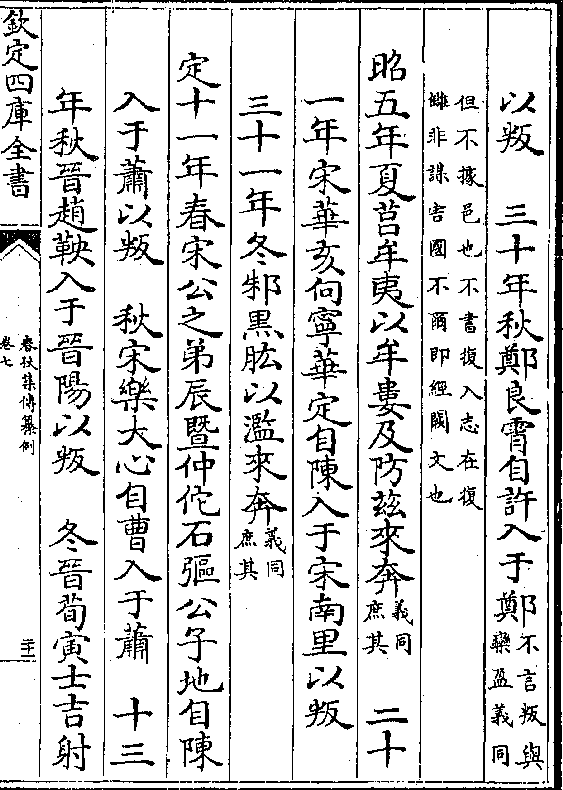 以叛　三十年秋鄭良霄自許入于鄭不言叛與欒盈義同
但不據邑也不書復入志在復
雖非謀害國不爾即經闕文也
昭五年夏莒牟夷以牟婁及防茲來奔義同庶其　二十
一年宋華亥向寧華定自陳入于宋南里以叛
三十一年冬邾黒肱以濫來奔義同庶其
定十一年春宋公之弟辰暨仲佗石彄公子地自陳
入于蕭以叛　秋宋樂大心自曹入于蕭　十三
年秋晉趙鞅入于晉陽以叛　冬晉荀寅士吉射
欽定四庫全書
春秋集傳纂例
卷七
二十